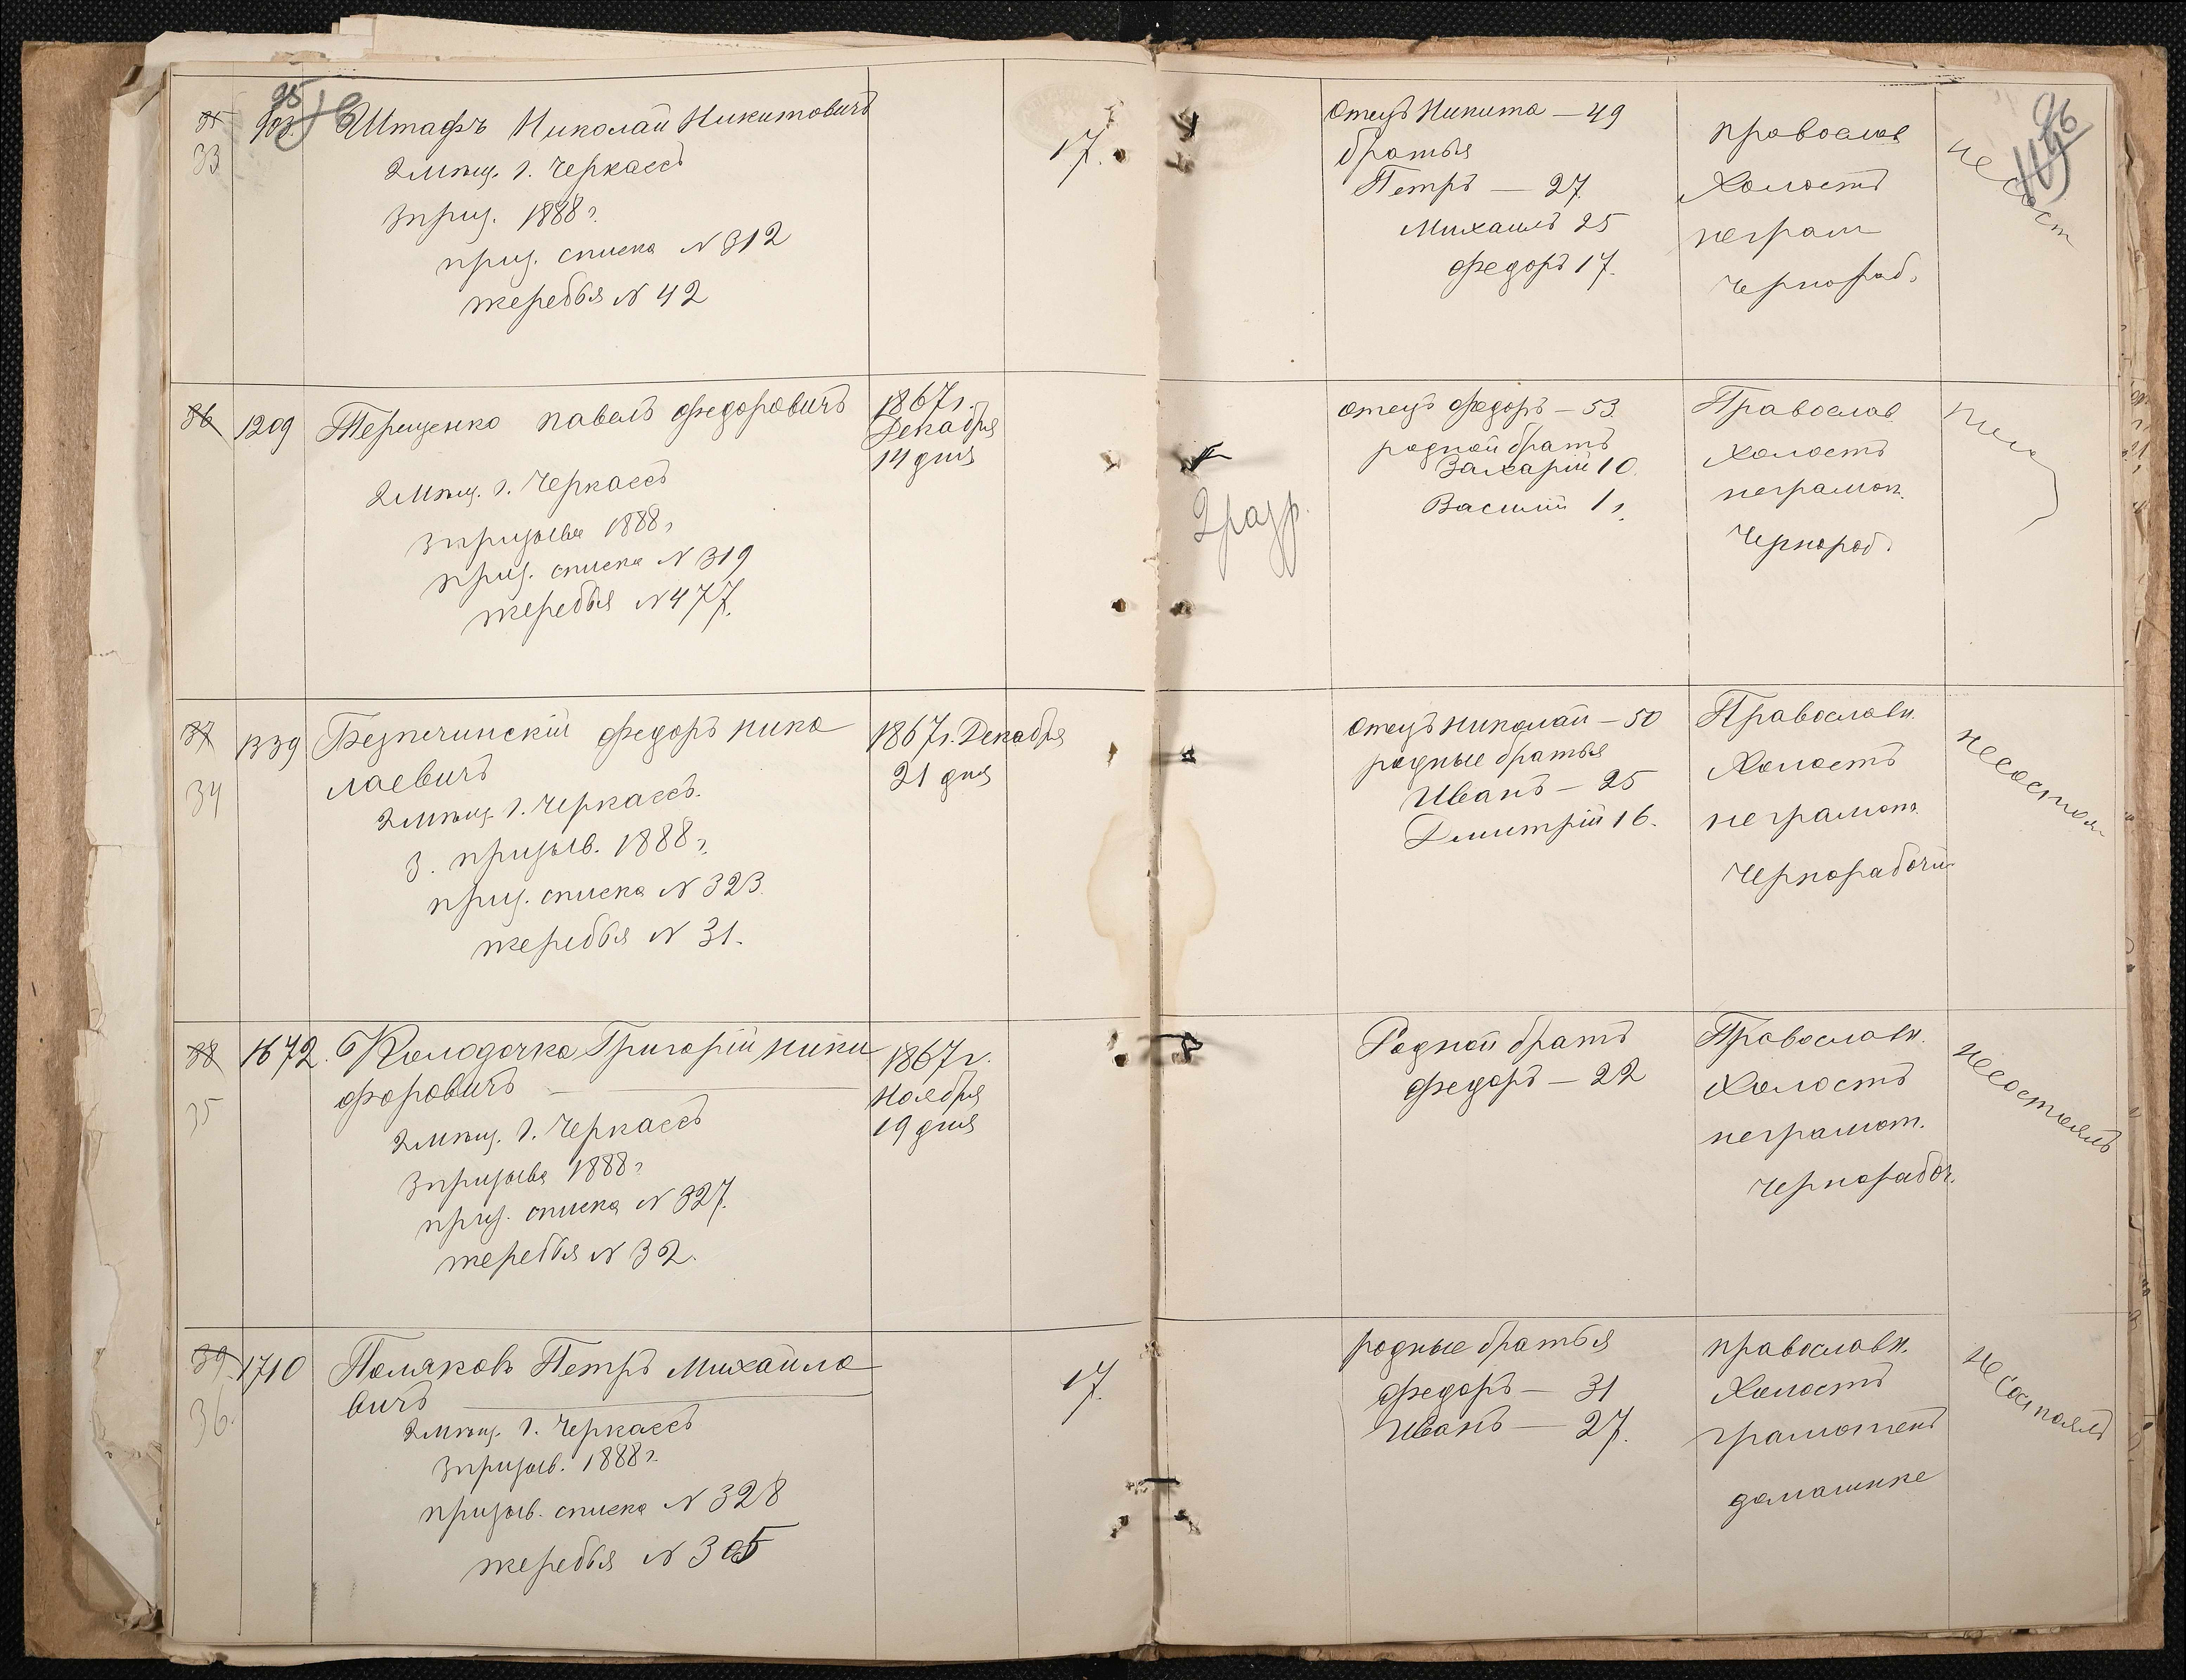 95
35
33
903
Штафъ Николай Никитовичъ
2 Мѣщ. г. Черкассъ
3 приз. 1888 г.
приз. списка N 312
жеребья N 42
17.
Отецъ Никита — 49
братья
Петръ — 27.
Михаилъ 25
Федоръ 17.
православ
Холостъ
неграм
Чернораб.
не сост
96
36
1209
Терещенко Павелъ Федоровичъ
2 Мѣщ. г. Черкассъ
3 призыва 1888 г
приз. списка N 319
жеребья N 477.
1867 г.
Декабря
14 дня
2 разр.
отецъ Федоръ — 53.
родной братъ
Захарій 10.
Василій 1 г.
Православ.
холостъ
неграмот.
Чернораб.
37
34
1339
Безпечинскій Федоръ Нико
лаевичъ
2 Мѣщ. г. Черкассъ.
3. призыв. 1888 г.
приз. списка N 323.
жеребья N 31.
1867 г. Декабря
21 дня
Отецъ Николай — 50
родные братья
Иванъ — 25
Дмитрій 16.
Православн.
Холостъ
неграмот.
Чернорабочій
не состоял
38
35
1672.
Колодочка Григорій Ники
форовичъ
2 Мѣщ. г. Черкассъ
3 призыва 1888 г
приз. списка N 327.
жеребья N 32.
1867 г.
Ноября
19 дня
Родной братъ
Федоръ — 22
Православн.
Холостъ
неграмот.
чернорабоч.
не состоялъ
39
36.
1710
Поляковъ Петръ Михайло
вичъ
2 Мѣщ. г. Черкассъ
3 призыв. 1888 г.
призыв. списка N 328
жеребья N 305
17.
родные братья
Федоръ — 31
Иванъ — 27.
православн.
Холостъ
грамотенъ
домашнке
не состоялъ